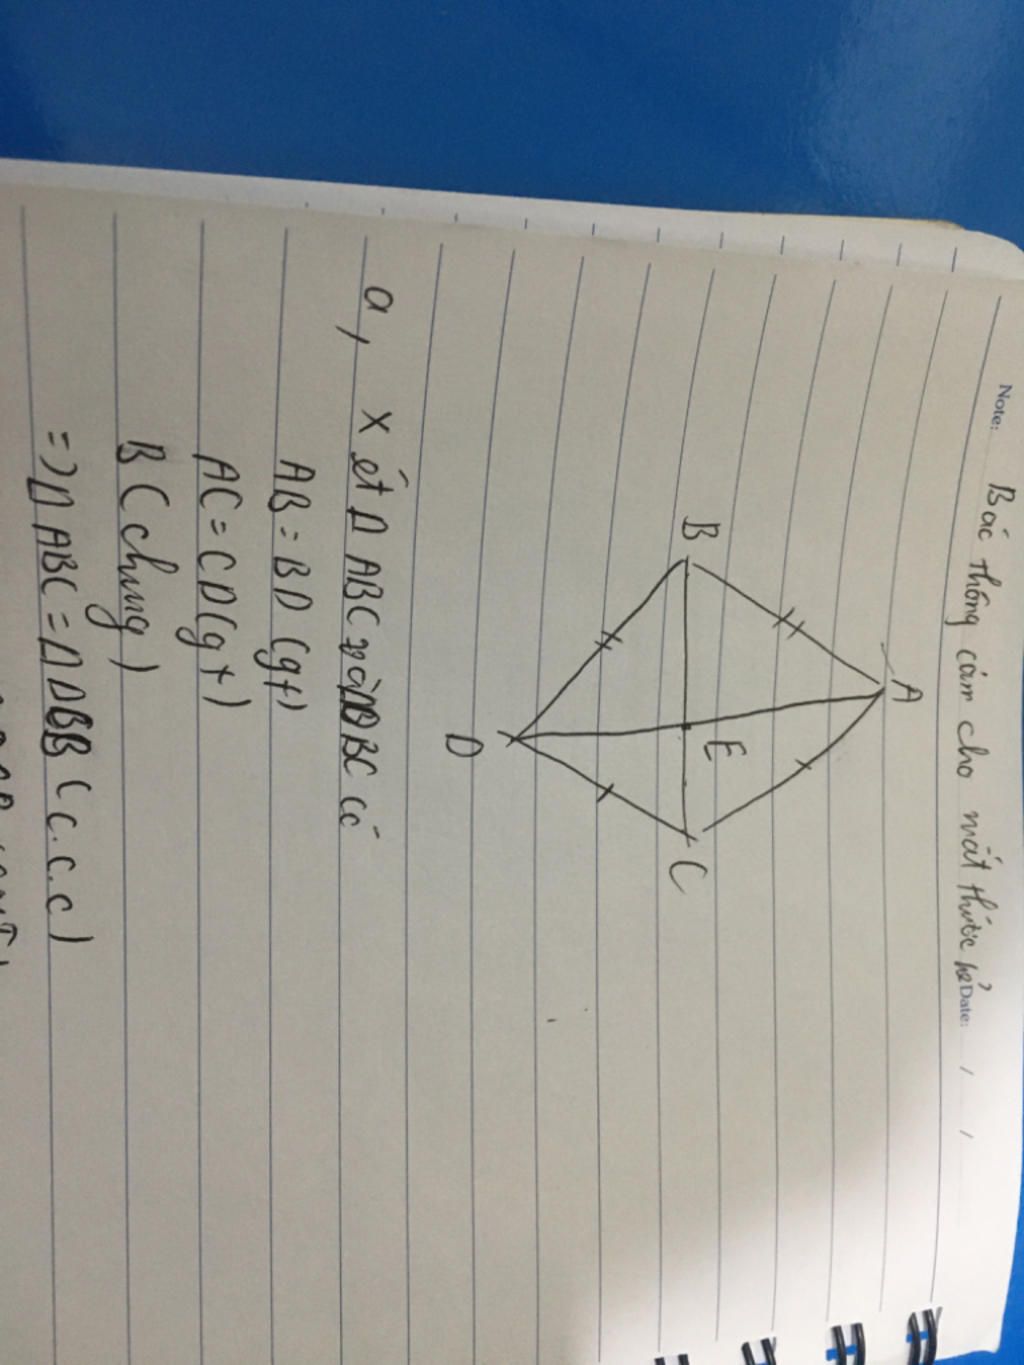 Note: Bác thông cảm cho mất thước kẻ Date: / /
A
B
E
C
D
a, xét Δ ABC và ΔDBC có
AB = BD (gt)
AC = CD (gt)
BC chung)
=> Δ ABC = Δ DBB (c.c.c)